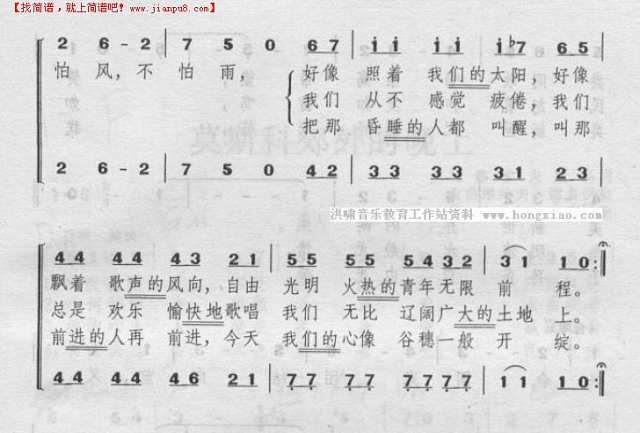 【找简谱，就上简谱吧！www.jianpu8.com】
2 6 - 2 | 7 5 0 6 7 | i i i i i ♭7 6 5 |
怕 风，不 怕 雨， 好像 照着 我们的太阳，好像
我们 从不 感觉 疲倦，我们
把那 昏睡的人都 叫醒，叫那
2 6 - 2 | 7 5 0 4 2 | 3 3 3 3 3 1 2 3 |
洪啸音乐教育工作站资料 www.hongxiao.com
4 4 4 4 4 3 2 1 | 5 5 5 5 5 5 1 2 | 3 1 1 0 :|
飘着 歌声的风向，自由 光明 火热的青年无限 前 程。
总是 欢乐 愉快地歌唱 我们 无比 辽阔广大的土地 上。
前进的人再 前进，今天 我们的心像 谷穗一般 开 绽。
4 4 4 4 4 6 2 1 | 7 7 7 7 7 7 7 7 | 1 1 1 0 :|